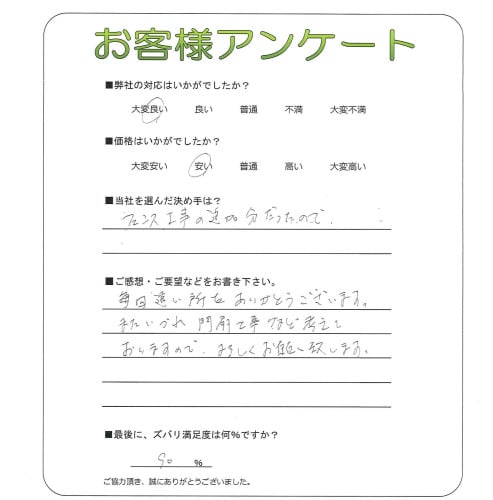 お客様アンケート
■弊社の対応はいかがでしたか？
大変良い 良い 普通 不満 大変不満
■価格はいかがでしたか？
大変安い 安い 普通 高い 大変高い
■当社を選んだ決め手は？
フェンス工事の追加分だったので、
■ご感想・ご要望などをお書き下さい。
毎回遠い所をありがとうございます。
またいづれ門扉工事など考えて
おりますので、よろしくお願い致します。
■最後に、ズバリ満足度は何%ですか？
90 %
ご協力頂き、誠にありがとうございました。